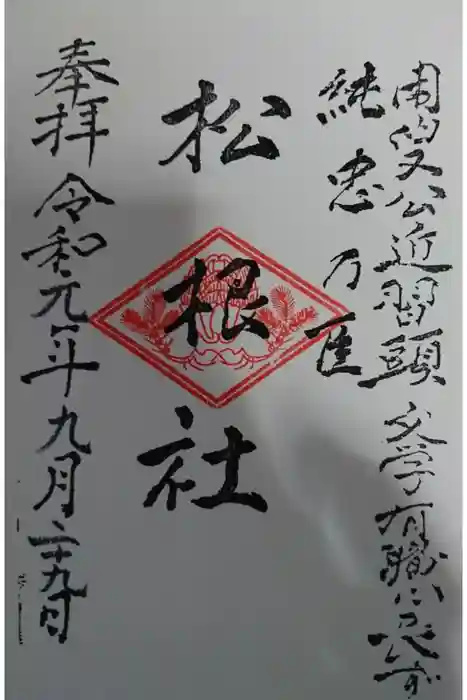 周叟公近習頭 文学有職
純忠乃臣
松根社
奉拝 令和元年九月二十九日